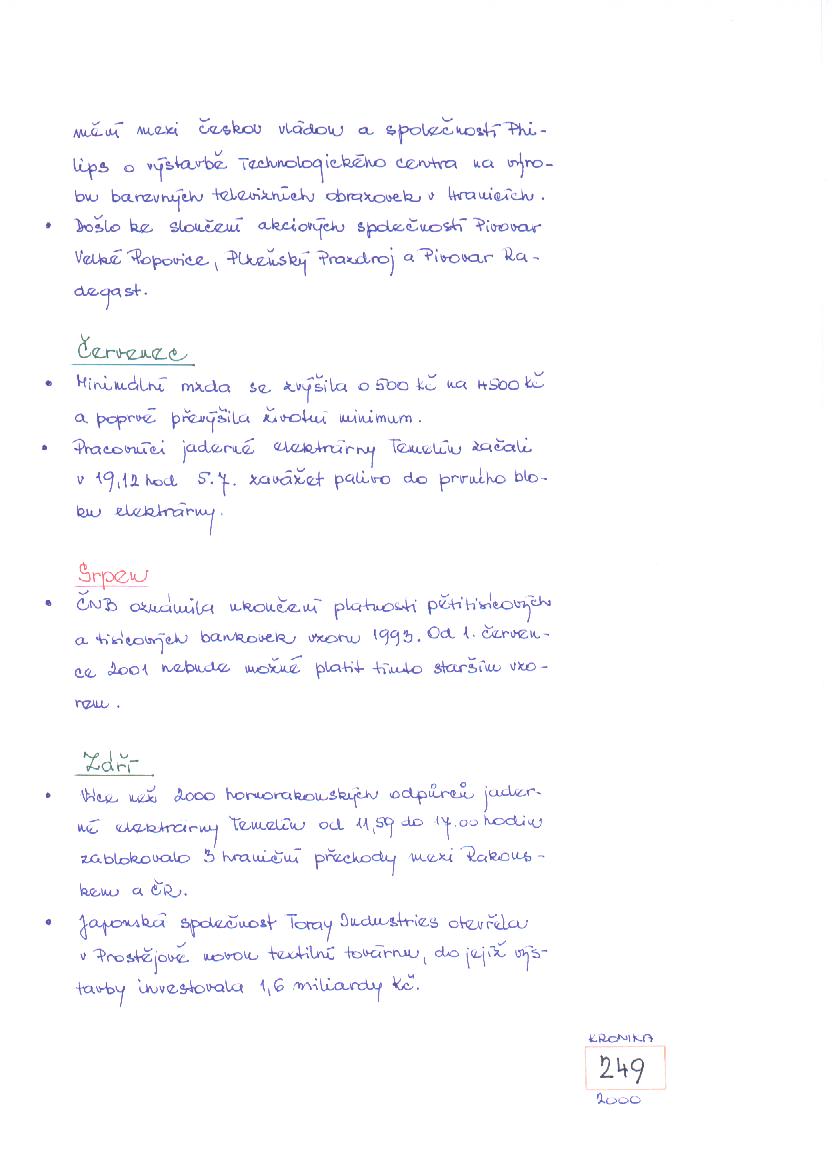 mění mezi českou vládou a společností Phi-
lips o výstavbě Technologického centra na výro-
bu barevných televizních obrazovek v Hranicích.
• Došlo ke sloučení akciových společností Pivovar
Velké Popovice, Plzeňský Prazdroj a Pivovar Ra-
degast.
Červenec
• Minimální mzda se zvýšila o 500 kč na 4500 kč
a poprvé převýšila životní minimum.
• Pracovníci jaderné elektrárny Temelín začali
v 19,12 hod 5.7. zavážet palivo do prvního blo-
ku elektrárny.
Srpen
• ČNB oznámila ukončení platnosti pětitisícových
a tisícových bankovek vzoru 1993. Od 1. červen-
ce 2001 nebude možné platit tímto starším vzo-
rem.
Září
• Více než 2000 hornorakouských odpůrců jader-
né elektrárny Temelín od 11,59 do 17.00 hodin
zablokovalo 3 hraniční přechody mezi Rakous-
kem a ČR.
• Japonská společnost Toray Industries otevřela
v Prostějově novou textilní továrnu, do jejíž výs-
tavby investovala 1,6 miliardy Kč.
KRONIKA
249
2000